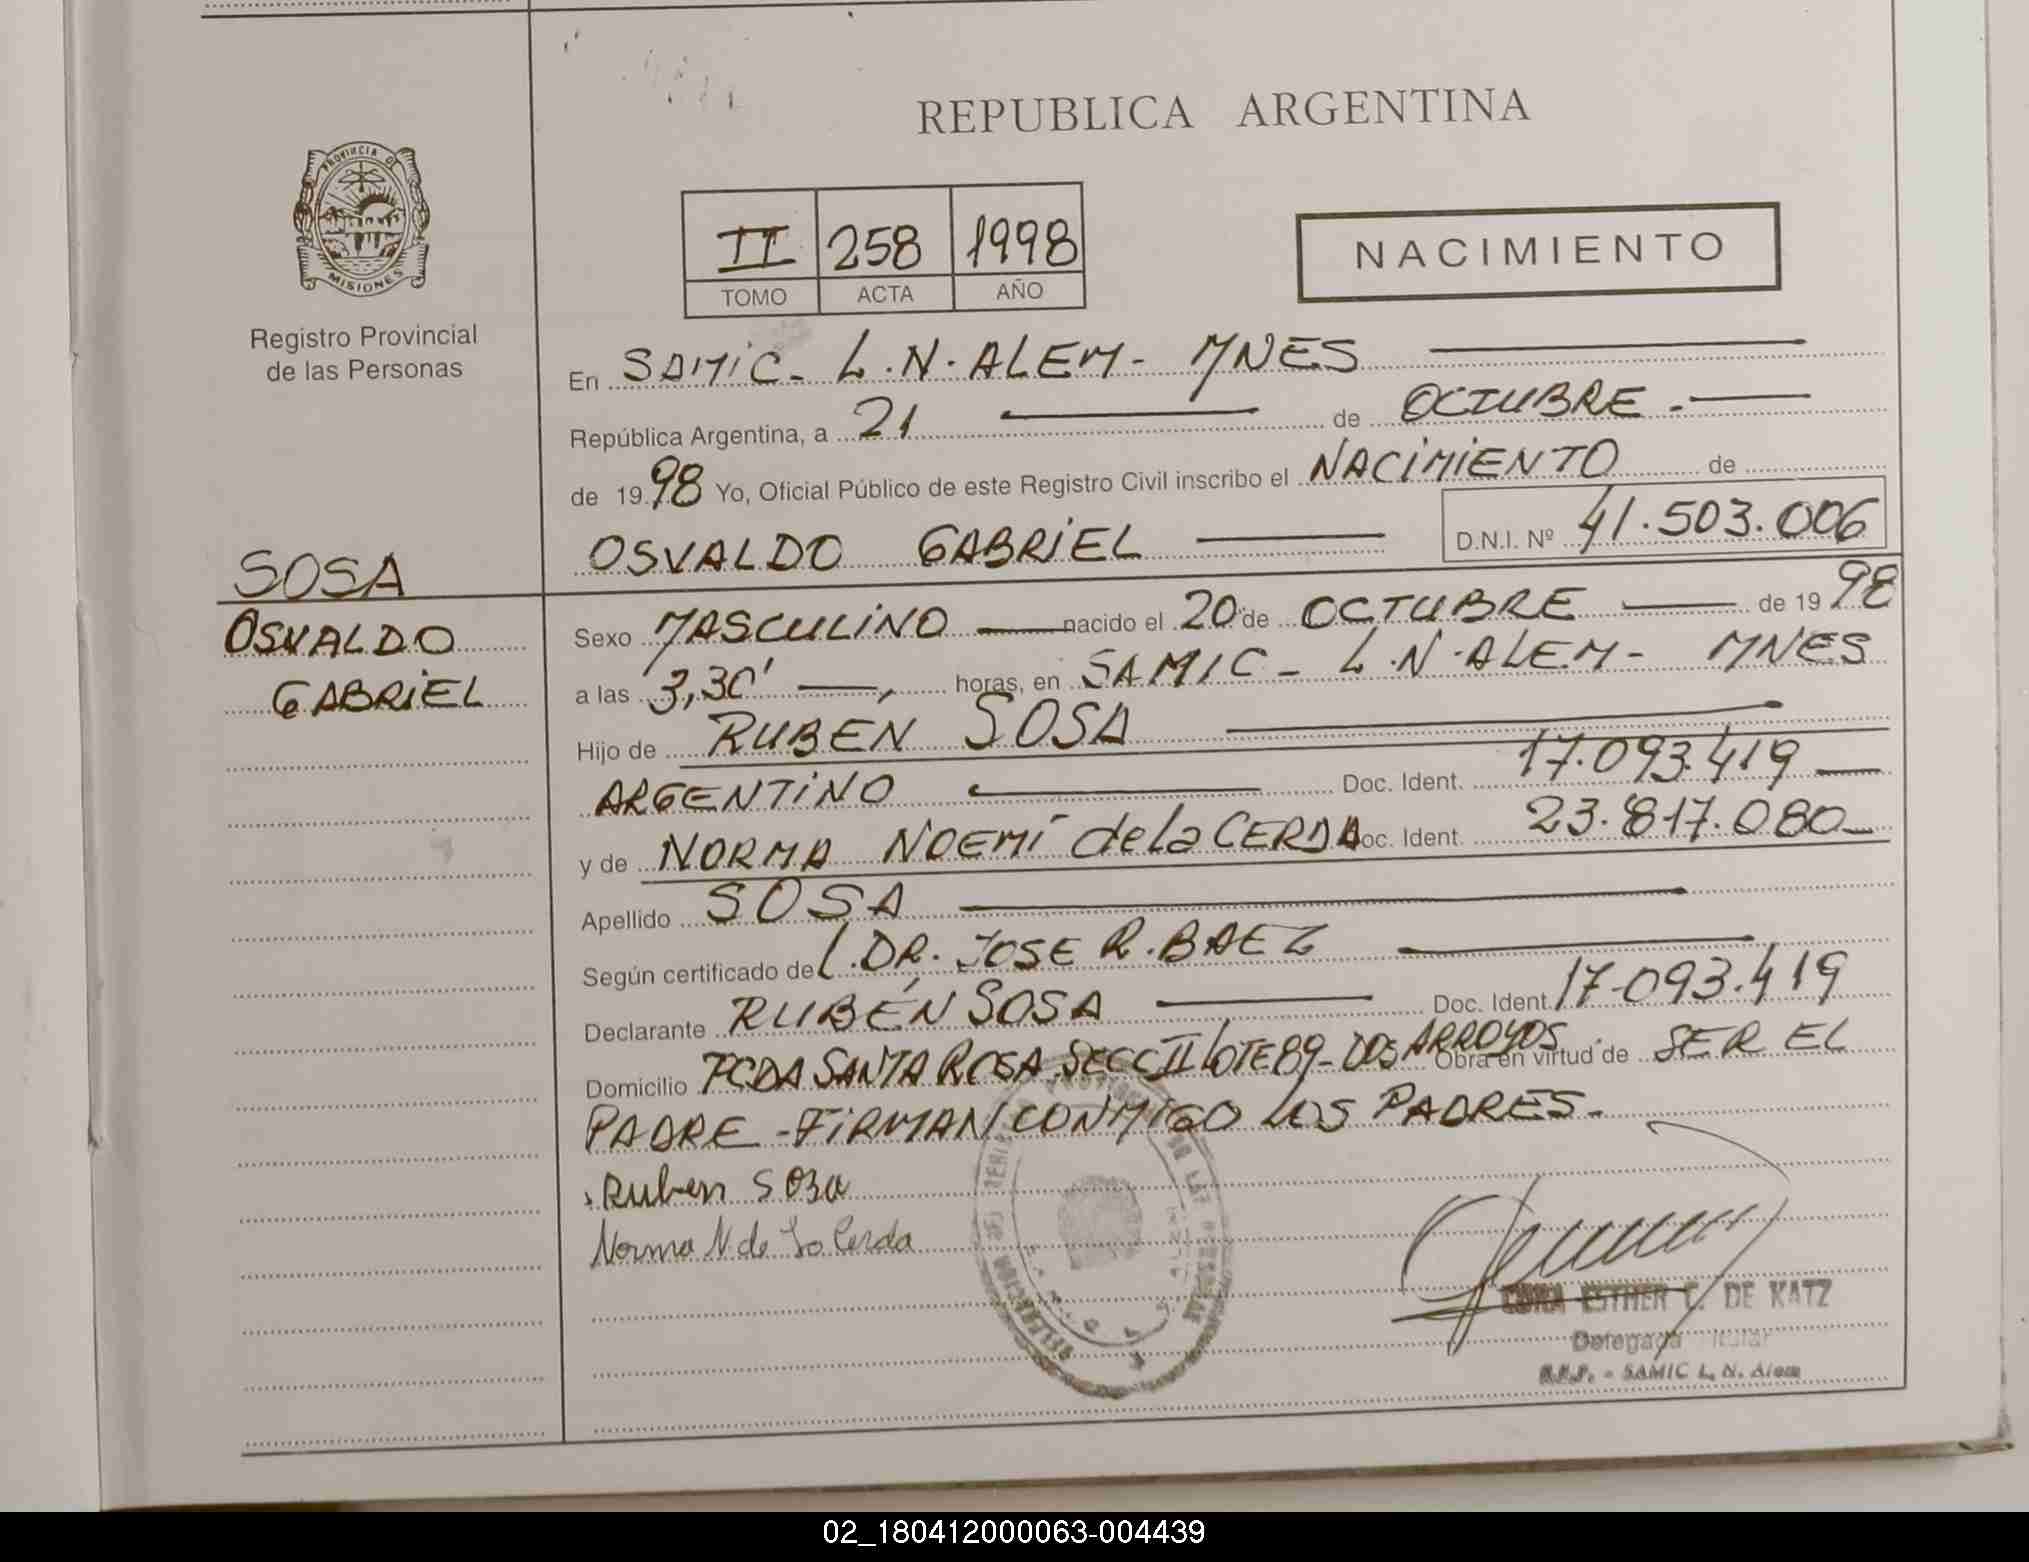 REPUBLICA ARGENTINA
PROVINCIA DE MISIONES
Registro Provincial
de las Personas
II 258 1998
TOMO ACTA AÑO
NACIMIENTO
En SAMIC - L.N. ALEM - MNES
República Argentina, a 21 de OCTUBRE.-
de 1998 Yo, Oficial Público de este Registro Civil inscribo el NACIMIENTO de
OSVALDO GABRIEL D.N.I. Nº 41.503.006
SOSA
OSVALDO
GABRIEL
Sexo MASCULINO nacido el 20 de OCTUBRE de 1998
a las 3,30' horas, en SAMIC - L.N. ALEM - MNES
Hijo de RUBÉN SOSA
ARGENTINO Doc. Ident. 17.093.419
y de NORMA NOEMÍ de la CERDA Doc. Ident. 23.817.080
Apellido SOSA
Según certificado del DR. JOSE R. BAEZ
Declarante RUBÉN SOSA Doc. Ident. 17.093.419
Domicilio PCDA SANTA ROSA SECC II LOTE 89 - DOS ARROYOS. Obra en virtud de SER EL
PADRE - FIRMAN CONMIGO LOS PADRES.-
Ruben Sosa
Norma N. de La Cerda
ESTHER C. DE KATZ
Delegada Titular
R.P.P. - SAMIC L. N. Alem
02_180412000063-004439